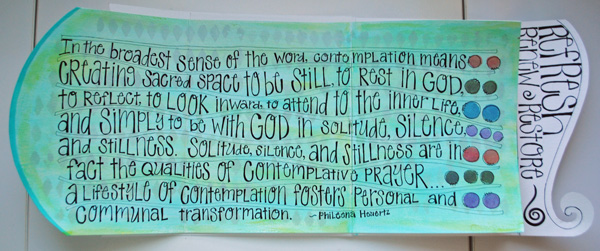 In the broadest sense of the word, contemplation means
creating sacred space to be still, to rest in God,
to reflect, to look inward, to attend to the inner life,
and simply to be with God in solitude, silence,
and stillness. Solitude, silence, and stillness are in
fact the qualities of contemplative prayer...
a lifestyle of contemplation fosters personal and
communal transformation. ~Phileena Heuertz
REFRESH
RENEW & RESTORE~